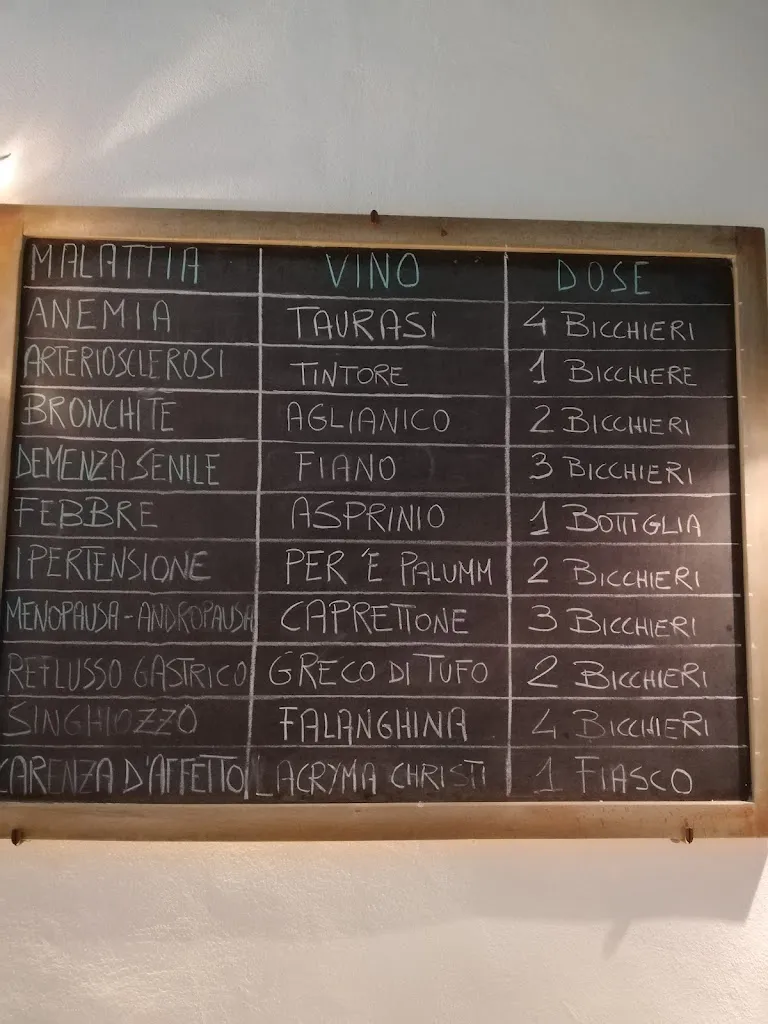 MALATTIA VINO DOSE
ANEMIA TAURASI 4 BICCHIERI
ARTERIOSCLEROSI TINTORE 1 BICCHIERE
BRONCHITE AGLIANICO 2 BICCHIERI
DEMENZA SENILE FIANO 3 BICCHIERI
FEBBRE ASPRINIO 1 BOTTIGLIA
IPERTENSIONE PER 'E PALUMM 2 BICCHIERI
MENOPAUSA - ANDROPAUSA CAPRETTONE 3 BICCHIERI
REFLUSSO GASTRICO GRECO DI TUFO 2 BICCHIERI
SINGHIOZZO FALANGHINA 4 BICCHIERI
CARENZA D'AFFETTO LACRYMA CHRISTI 1 FIASCO